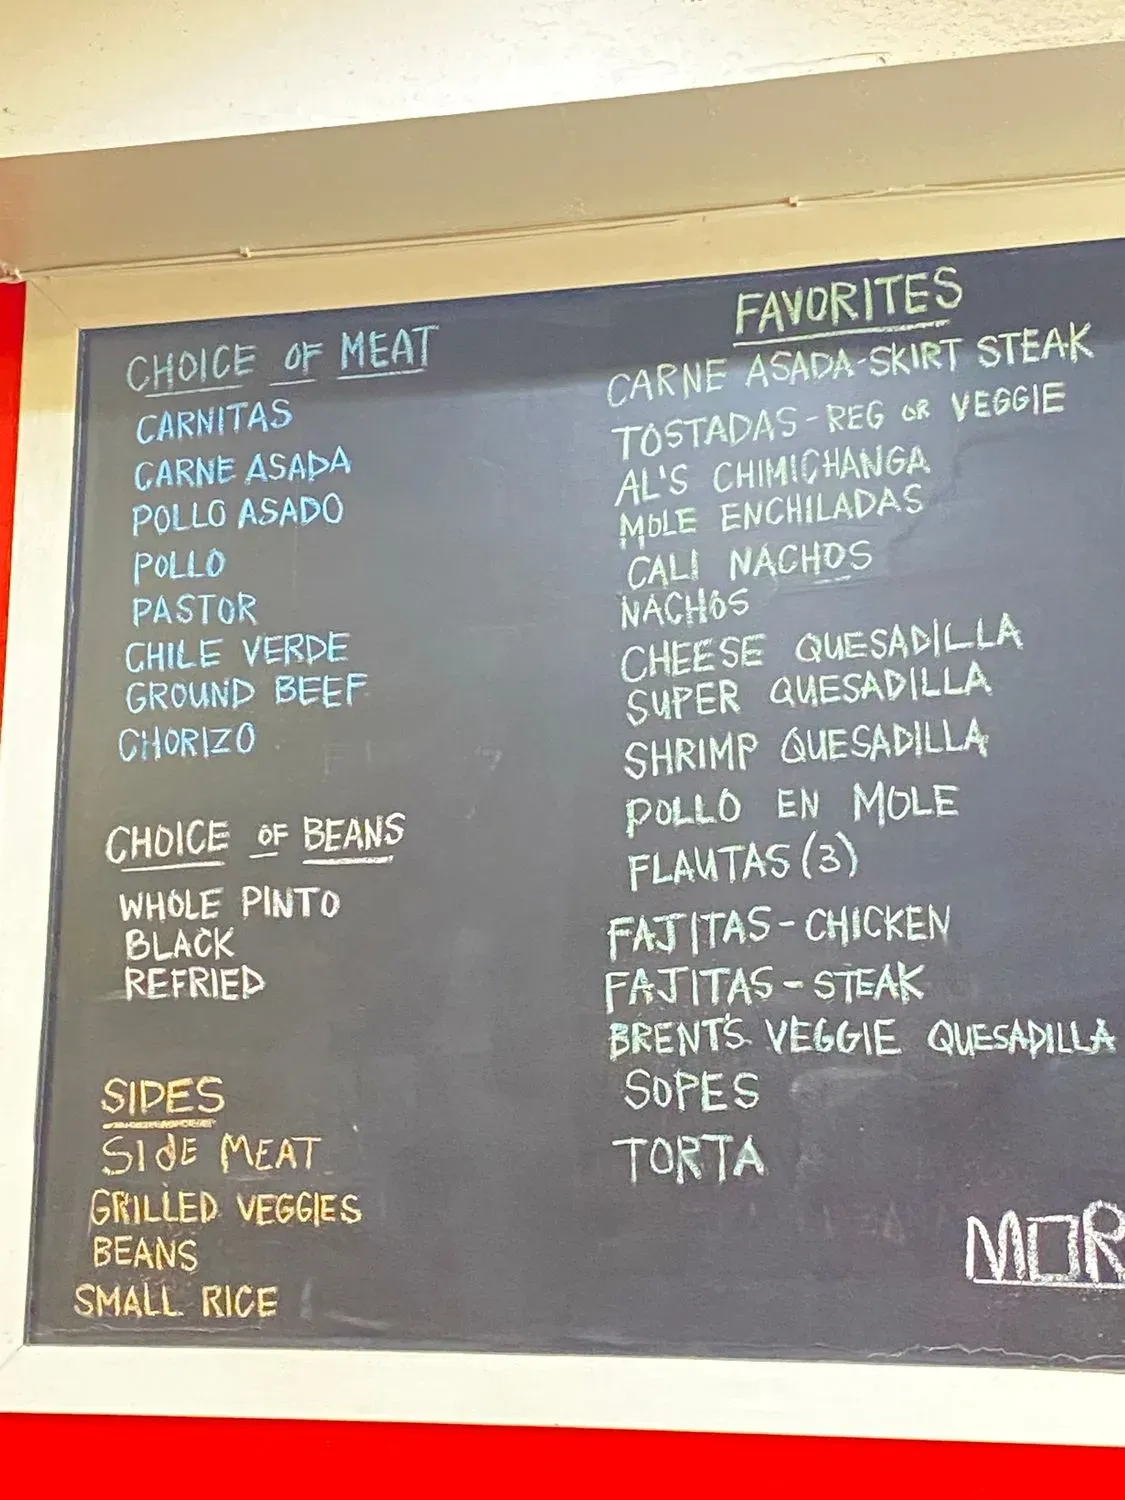 CHOICE OF MEAT
CARNITAS
CARNE ASADA
POLLO ASADO
POLLO
PASTOR
CHILE VERDE
GROUND BEEF
CHORIZO
CHOICE OF BEANS
WHOLE PINTO
BLACK
REFRIED
SIDES
SIdE MEAT
GRILLED VEGGIES
BEANS
SMALL RICE
FAVORITES
CARNE ASADA-SKIRT STEAK
TOSTADAS-REG OR VEGGIE
AL'S CHIMICHANGA
MOLE ENCHILADAS
CALI NACHOS
NACHOS
CHEESE QUESADILLA
SUPER QUESADILLA
SHRIMP QUESADILLA
POLLO EN MOLE
FLAUTAS (3)
FAJITAS-CHICKEN
FAJITAS-STEAK
BRENT'S VEGGIE QUESADILLA
SOPES
TORTA
MOR